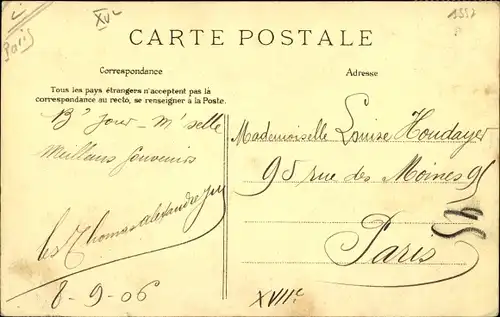 Paris
XVe
CARTE POSTALE
Correspondance
Adresse
Tous les pays étrangers n'acceptent pas la
correspondance au recto, se renseigner à la Poste.
Bjour - M'selle
Meilleurs Souvenirs
Thomas Alexandre
8-9-06
Mademoiselle Louise Houdayer
95 rue des Moines 95
Paris
XVIIe